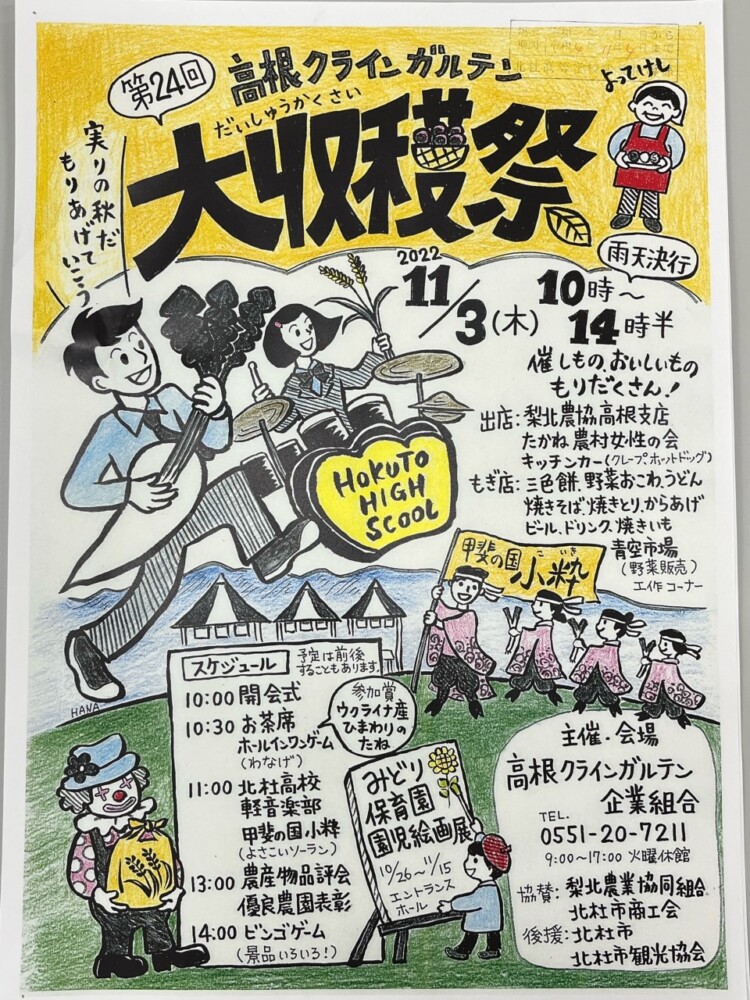 第24回
高根クラインガルテン
よってけし
だいしゅうかくさい
大収穫祭
実りの秋だ
もりあげて
いこう
雨天決行
2022
11/3(木)
10時〜
14時半
催しもの、おいしいもの
もりだくさん!
出店:梨北農協高根支店
たかね農村女性の会
キッチンカー(クレープ、ホットドッグ)
もぎ店:三色餅、野菜おこわ、うどん
焼きそば、焼きとり、からあげ
ビール、ドリンク、焼きいも
青空市場
(野菜販売)
工作コーナー
HOKUTO
HIGH
SCOOL
甲斐の国
こいき
小粋
HANA
スケジュール
予定は前後
することもあります。
10:00 開会式
10:30 お茶席
ホールインワンゲーム
(わなげ)
参加賞
ウクライナ産
ひまわりの
たね
11:00 北杜高校
軽音楽部
甲斐の国小粋
(よさこいソーラン)
13:00 農産物品評会
優良農園表彰
14:00 ビンゴゲーム
(景品いろいろ!)
みどり
保育園
園児絵画展
10/26〜11/15
エントランス
ホール
主催・会場
高根クラインガルテン
企業組合
TEL.
0551-20-7211
9:00〜17:00 火曜休館
協賛:梨北農業協同組合
北杜市商工会
後援:北杜市
北杜市観光協会